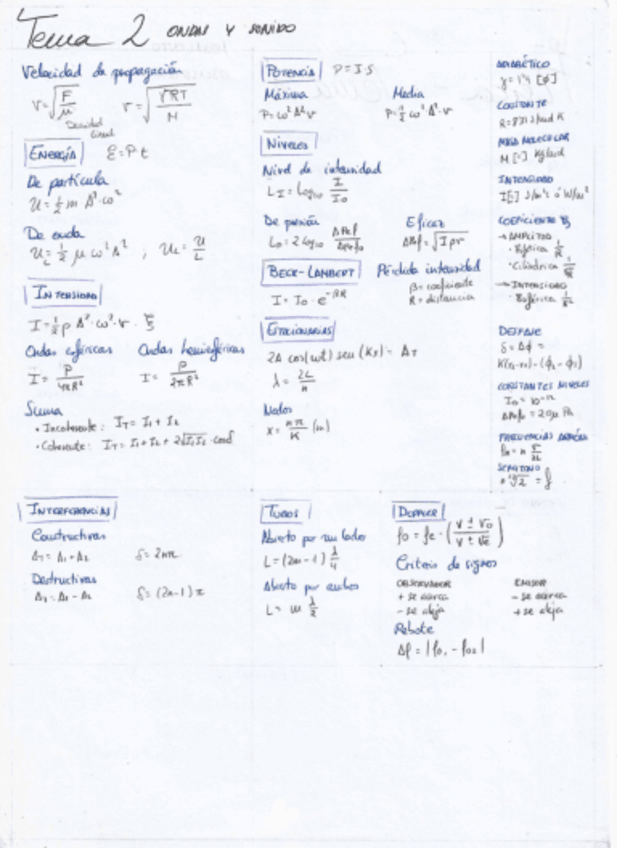 Tema 2 ONDAS Y SONIDO
Velocidad de propagación
V = √(F/μ) v = √(γRT/M)
Densidad lineal
ENERGÍA E = P t
De partícula
U = ½ m A² · ω²
De onda
U/L = ½ μ ω² A² ; U_L = U/L
INTENSIDAD
I = ½ ρ A² · ω² · v · ξ
Ondas esféricas Ondas hemisféricas
I = P/4πR² I = P/2πR²
Suma
• Incoherente: I_T = I₁ + I₂
• Coherente: I_T = I₁ + I₂ + 2√(I₁I₂) · cosδ
POTENCIA P = I·S
Máxima Media
P = ω² A² v P = ½ ω² A² · v
NIVELES
Nivel de intensidad
L_I = Log₁₀ I/I₀
De presión Eficaz
L₀ = 2 Log₁₀ ΔPef/ΔPef₀ ΔPef = √(Iρv)
BECK-LAMBERT Pérdida intensidad
I = I₀ · e^(-βR) β = coeficiente
R = distancia
ESTACIONARIAS
2A cos(ωt) sen(Kx) = A_T
λ = 2L/n
Nodos
x = nπ/K (m)
ADIABÁTICO
γ = 1'4 [Ø]
CONSTANTE
R = 8'31 J/mol K
MASA MOLECULAR
M [=] Kg/mol
INTENSIDAD
I [=] J/m²s ó W/m²
COEFICIENTE ξ
→ AMPLITUD
• Esférica 1/R
• Cilíndrica 1/√R
→ INTENSIDAD
• Esférica 1/R²
DESFASE
δ = Δϕ =
K(x₂-x₁) - (ϕ₂ - ϕ₁)
CONSTANTES NIVELES
I₀ = 10⁻¹²
ΔPef₀ = 20μ Pa
SEMITONO
INTERFERENCIAS
Constructivas
A_T = A₁ + A₂ δ = 2πn
Destructivas
A_T = A₁ - A₂ δ = (2n-1) π
TUBOS
Abierto por un lado
L = (2n-1) λ/4
Abierto por ambos
L = n λ/2
DOPPLER
f₀ = fe · (V ± V₀ / V ± Ve)
Criterio de signos
OBSERVADOR EMISOR
+ se acerca - se acerca
- se aleja + se aleja
Rebote
Δf = |f₀₁ - f₀₂|